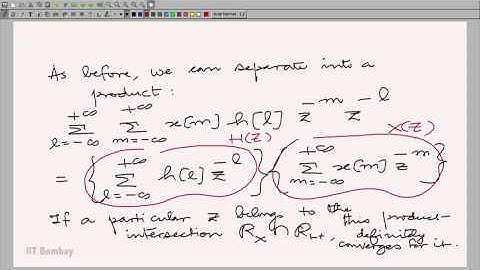 As before, we can separate into a
product :
+∞ +∞
Σ Σ x[m] h[l] z^-m z^-l
l=-∞ m=-∞
H(z) X(z)
= { Σ_{l=-∞}^{+∞} h[l] z^-l } { Σ_{m=-∞}^{+∞} x[m] z^-m }
If a particular z belongs to the
intersection R_x ∩ R_H,
this product
definitely
converges for it.
IIT Bombay